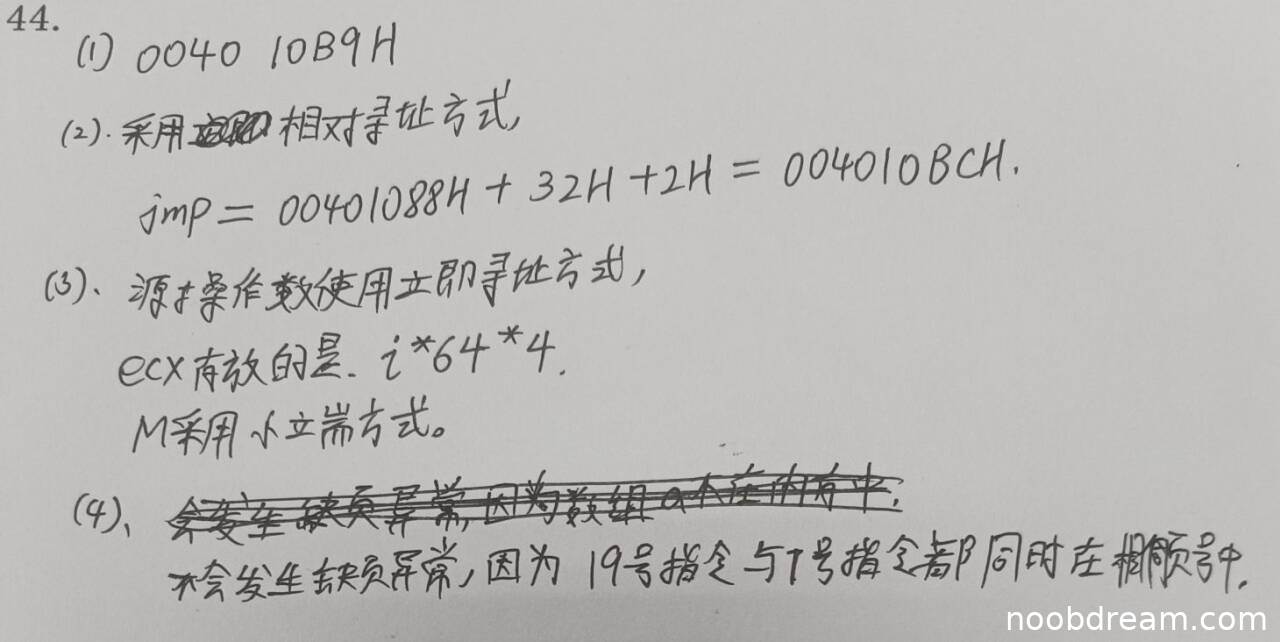 44.
(1) 0040 10B9H
(2). 采用 相对寻址方式,
jmp = 00401088H + 32H + 2H = 004010BCH.
(3)、源操作数使用立即寻址方式,
ecx存放的是. i*64*4.
M采用小立端方式。
(4)、会发生缺页异常,因为数组a不在内存中.
不会发生缺页异常,因为19号指令与1号指令都同时在相同页号中.
noobdream.com